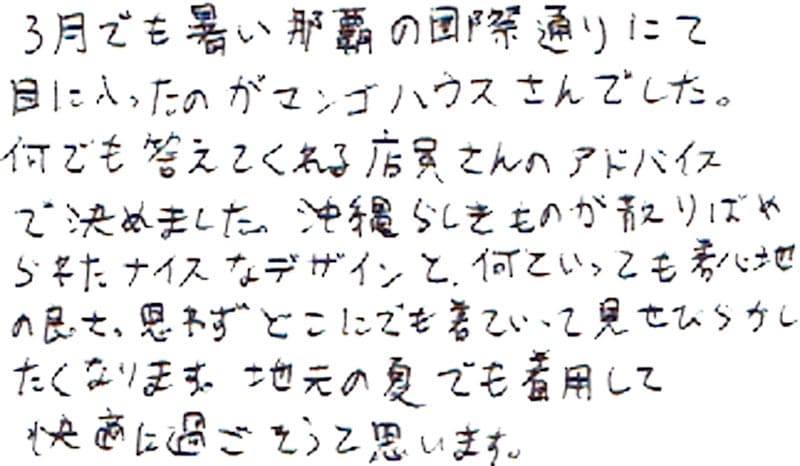 3月でも暑い那覇の国際通りにて
目に入ったのがマンゴハウスさんでした。
何でも答えてくれる店員さんのアドバイス
で決めました。沖縄らしきものが散りばめ
られたナイスなデザインと、何といっても着心地
の良さ。思わずどこにでも着ていって見せびらかし
たくなります。地元の夏でも着用して
快適に過ごそうと思います。